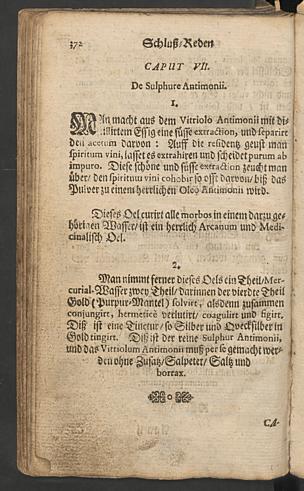 372
Schluß/Reden
CAPUT VII.
De Sulphure Antimonii.
1.
MAn macht aus dem Vitriolo Antimonii mit di-
stillirtem Essig eine süsse extraction, und separirt
den acetum darvon : Auff die residentz geust man
spiritum vini, lasset es extrahiren und scheidet purum ab
impuro. Diese schöne und süsse extraction zeucht man
über/ den spirituum vini cohobir so offt darvon/ biß das
Pulver zu einem herrlichen Oleo Antimonii wird.
Dieses Oel curirt alle morbos in einem darzu ge-
hörigen Wasser/ ist ein herrlich Arcanum und Medi-
cinalisch Oel.
2.
Man nimmt ferner dieses Oels ein Theil/ Mer-
curial-Wasser zwey Theil/ darinnen der vierdte Theil
Gold (Purpur-Mantel) solvirt, alsdenn zusammen
conjungirt, hermeticè verlutirt/ coagulirt, figirt.
Diß ist eine Tinctur/ so Silber und Qvecksilber in
Gold tingirt. Diß ist der reine Sulphur Antimonii,
und das Vitriolum Antimonii muß per se gemacht wer-
den ohne Zusatz/ Salpeter/ Saltz und
borrax.
CA-